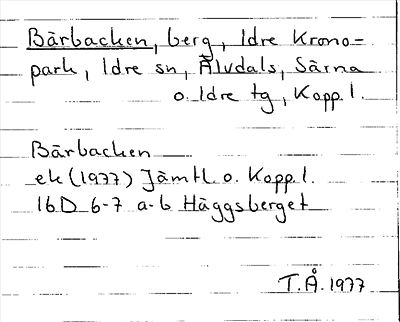 Bärbacken, berg, Idre Krono-
park, Idre sn, Älvdals, Särna
o. Idre tg, Kopp.l.
Bärbacken
ek (1977) Jämtl. o. Kopp.l.
16D 6-7 a-b Häggsberget
T.Å. 1977